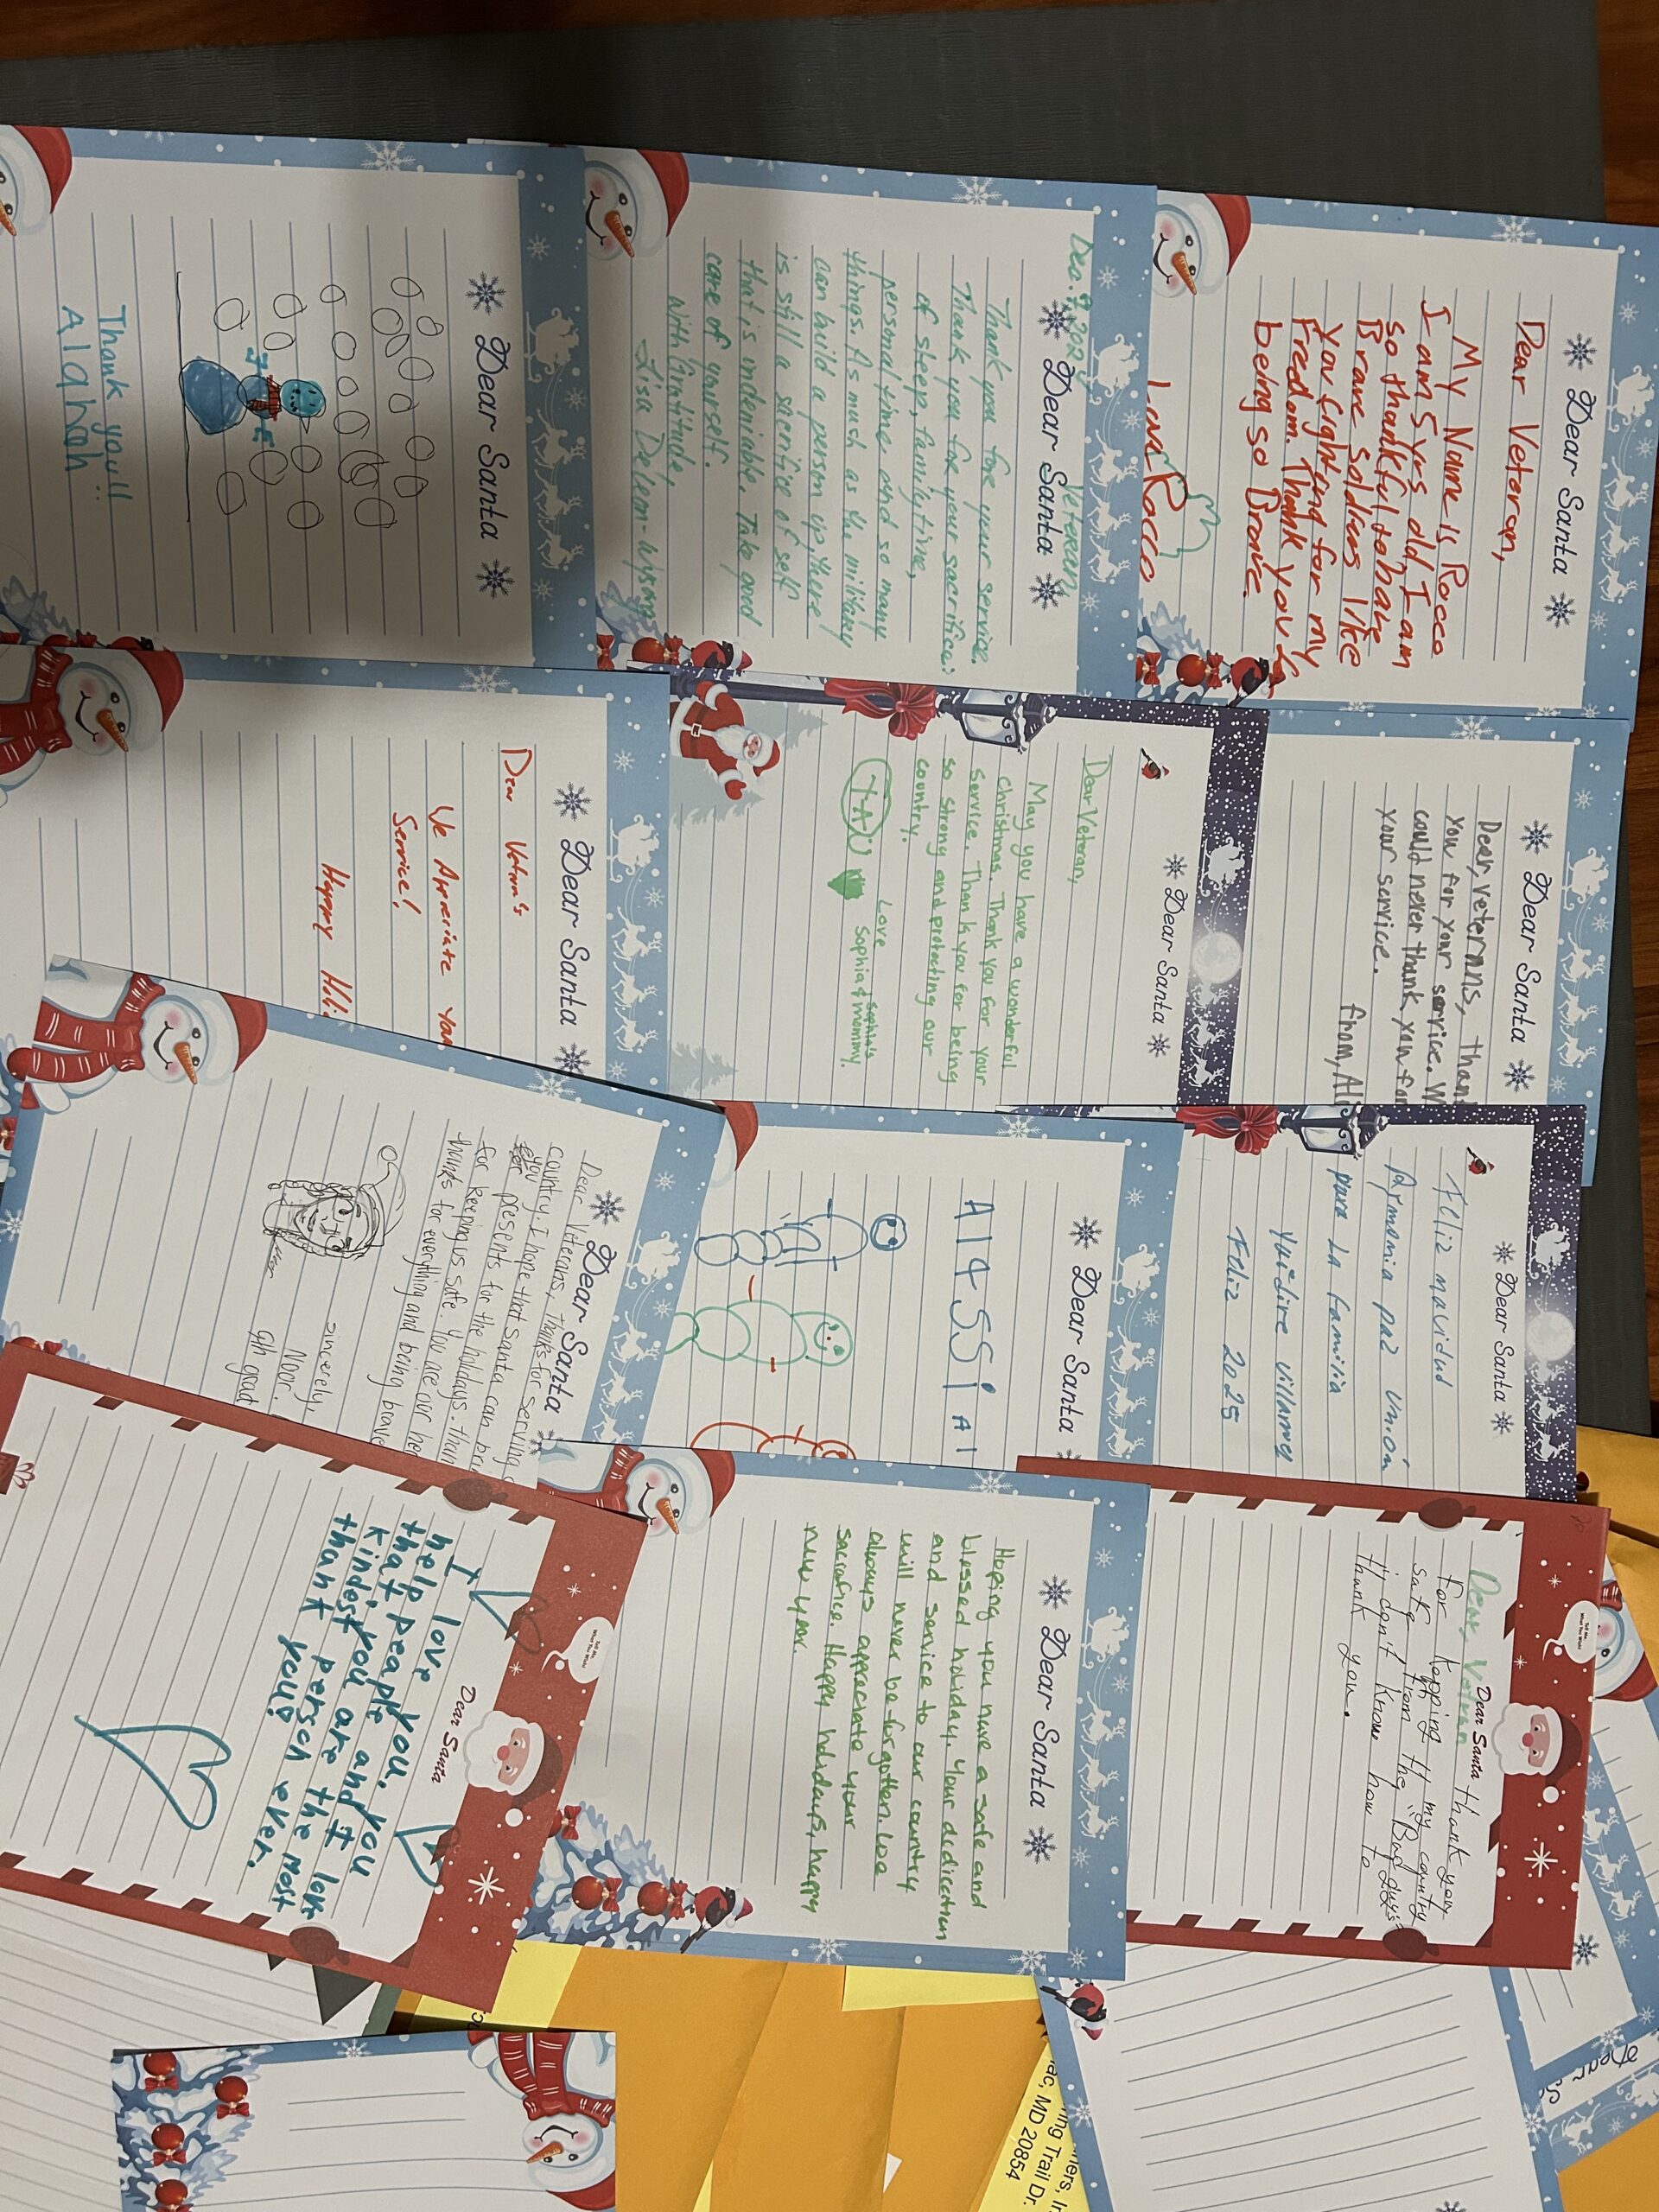 Dear Santa
Dear Veteran,
My Name is Rocco
I am 5yrs old, I am
so thankful to have
Brave Soldiers like
You fighting for my
Freedom. Thank you
being so Brave.
Luna Rocco
Dear Santa
Dear, veterans, than
you for your service. W
could never thank you for
your service.
from, Ali
Dear Santa
Feliz navidad
Paz unión
para La familia
Feliz 2025
Dear Santa
Dear, Veteran Thank you
For kepping my country
safe from the "Bad guys"
i don't know how to
thank you.
Dear Santa
Dec. 9, 2024
Veteran
Thank you for your service.
Thank you for your sacrifice:
of sleep, family time,
personal time and so many
things. As much as the military
can build a person up, there
is still a sacrifice of self
that is undeniable. Take good
care of yourself.
With Gratitude,
Lisa
Dear Santa
Dear Veteran,
May you have a wonderful
christmas. Thank you for your
service. Thank you for being
so strong and protecting our
country.
Love
Sophia & Sophia's
mommy.
Dear Santa
A1assi A1
Dear Santa
Hoping you have a safe and
blessed holiday. Your dedication
and service to our country
will never be forgotten. We
always appreciate your
sacrafice. Happy holidays, happy
new year.
Dear Santa
Thank you!!
Alahah
Dear Santa
Dear Veteran's
We Appreciate You
Service!
Happy Holi
Dear Santa
Dear Veterans, Thanks for serving
country. I hope that Santa can bri
you presents for the holidays. Than
for keeping us safe. You are our he
thanks for everything and being brave
sincerely,
Noor.
9th grad
Dear Santa
I love
help people you. you
that people and I love
kindest you are the most
thank person ever.
you!
ing Trail Dr.
ac, MD 20854
Dear